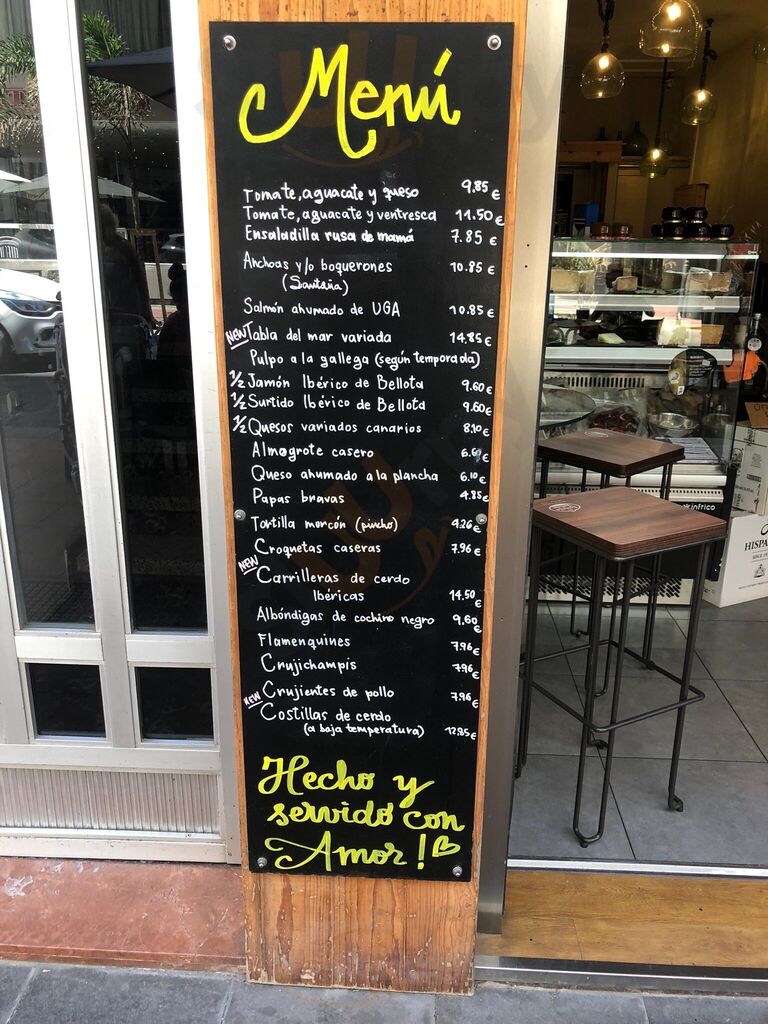 Menú
Tomate, aguacate y queso 9,85 €
Tomate, aguacate y ventresca 11.50 €
Ensaladilla rusa de mamá 7.85 €
Anchoas y/o boquerones 10.85 €
(Santoña)
Salmón ahumado de UGA 10.85 €
NEW Tabla del mar variada 14,85 €
Pulpo a la gallega (según temporada)
1/2 Jamón Ibérico de Bellota 9.60 €
1/2 Surtido Ibérico de Bellota 9.60 €
1/2 Quesos variados canarios 8.10 €
Almogrote casero €
Queso ahumado a la plancha 6.10 €
Papas bravas 4.85 €
Tortilla morcón (pincho) 4.26 €
Croquetas caseras 7.96 €
NEW Carrilleras de cerdo
Ibéricas 14.50 €
Albóndigas de cochino negro 9,60 €
Flamenquines 7.96 €
Crujichampis 7.96 €
NEW Crujientes de pollo 7.96 €
Costillas de cerdo
(a baja temperatura) 12,85 €
Hecho y
servido con
Amor!
infrico
HISPA